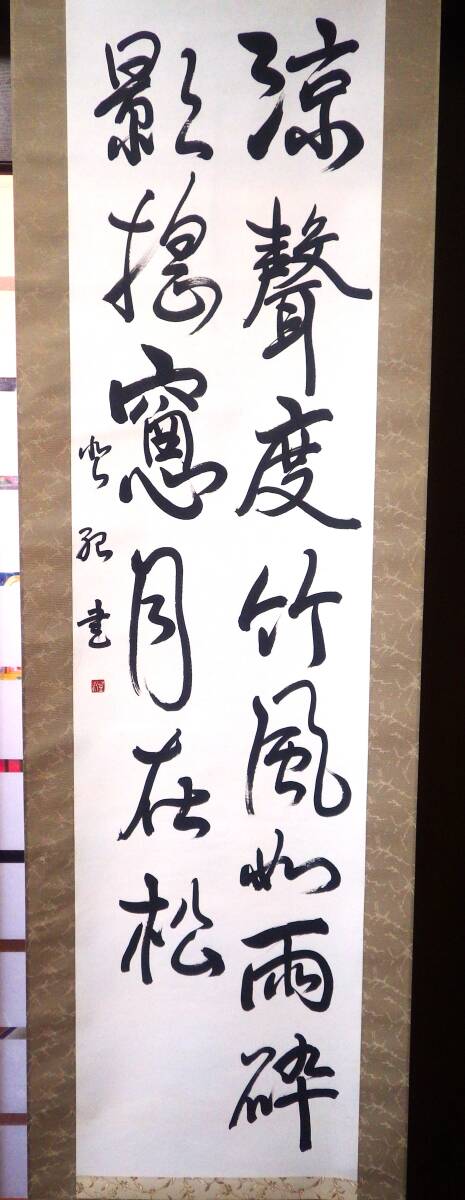 涼聲度竹風如雨碎
影搖窻月在松
書